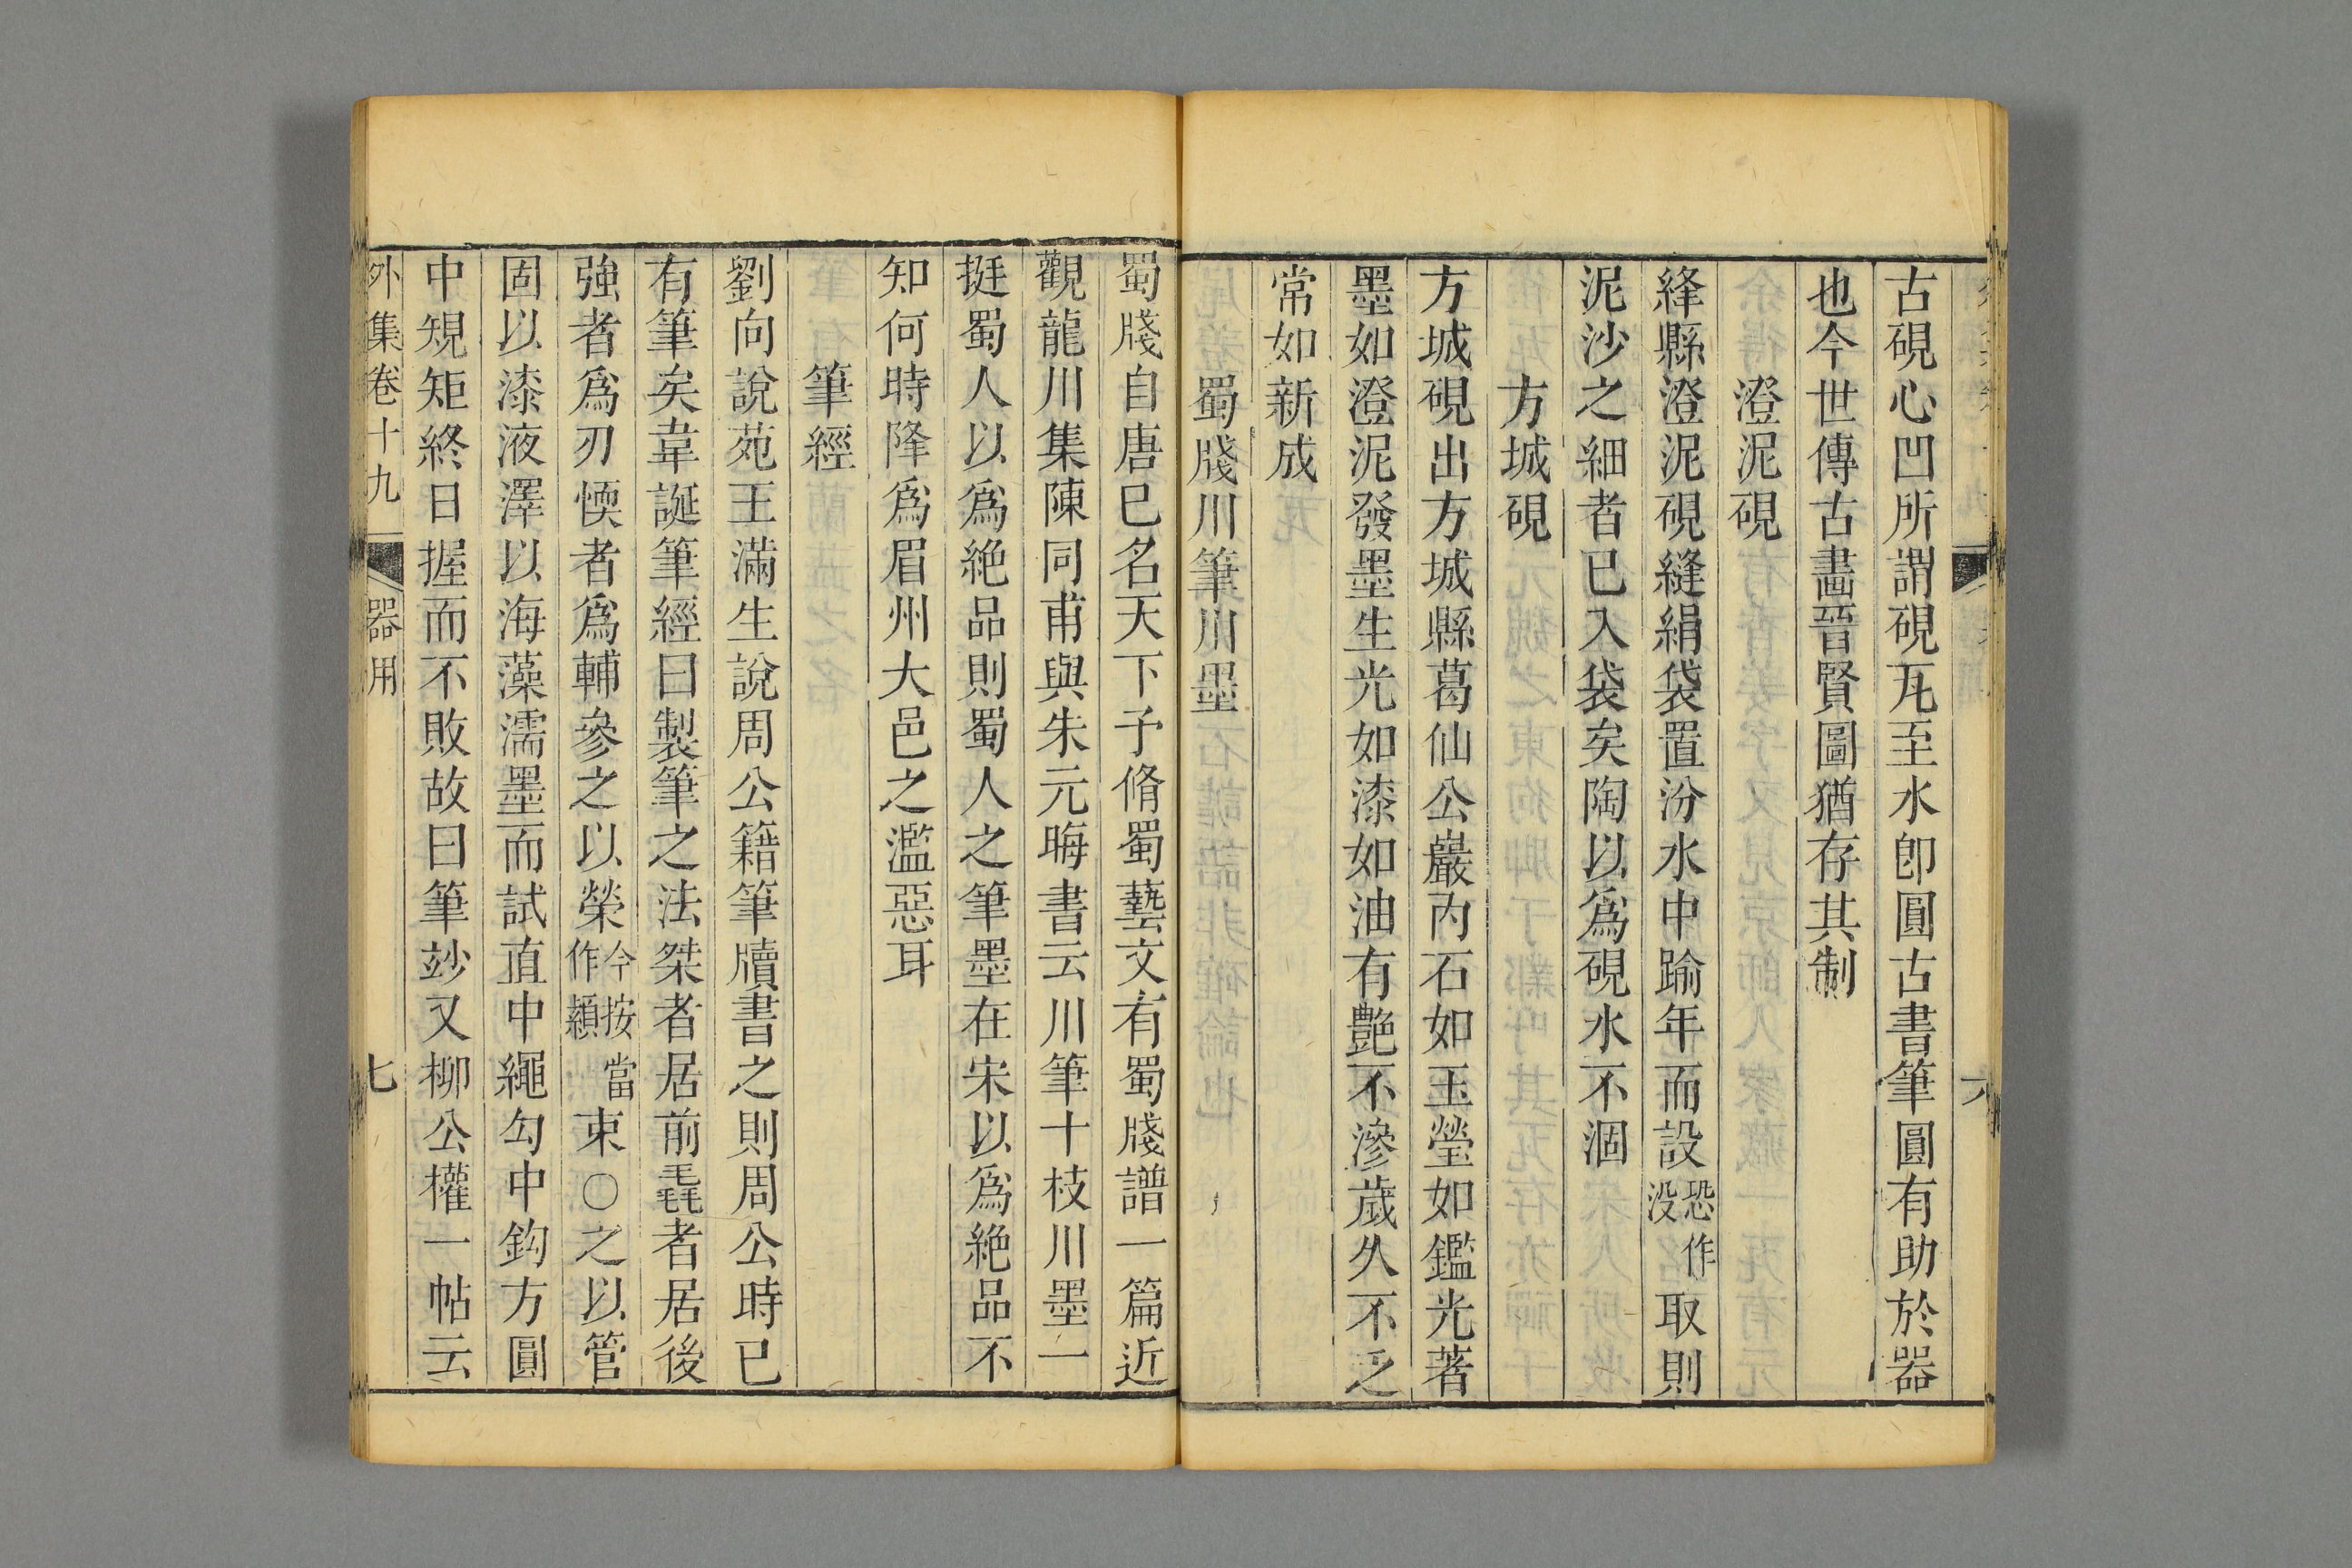 古硯心凹所謂硯瓦至水卽圓古書筆圓有助於器
也今世傳古畵晉賢圖猶存其制
澄泥硯
絳縣澄泥硯縫絹袋置汾水中踰年而設恐作没取則
泥沙之細者已入袋矣陶以爲硯水不涸
方城硯
方城硯出方城縣葛仙公巖內石如玉瑩如鑑光著
墨如澄泥發墨生光如漆如油有艷不滲歲久不乏
常如新成
蜀牋川筆川墨
蜀牋自唐已名天下予脩蜀藝文有蜀牋譜一篇近
觀龍川集陳同甫與朱元晦書云川筆十枝川墨一
挺蜀人以爲絶品則蜀人之筆墨在宋以爲絶品不
知何時降爲眉州大邑之濫惡耳
筆經
劉向說苑王滿生說周公籍筆牘書之則周公時已
有筆矣韋誕筆經曰製筆之法桀者居前毳者居後
強者爲刃愞者爲輔參之以䋹今按當作顈束○之以管
固以漆液澤以海藻濡墨而試直中繩勾中鈎方圓
中規矩終日握而不敗故曰筆玅又柳公權一帖云
外集卷十九 器用 七